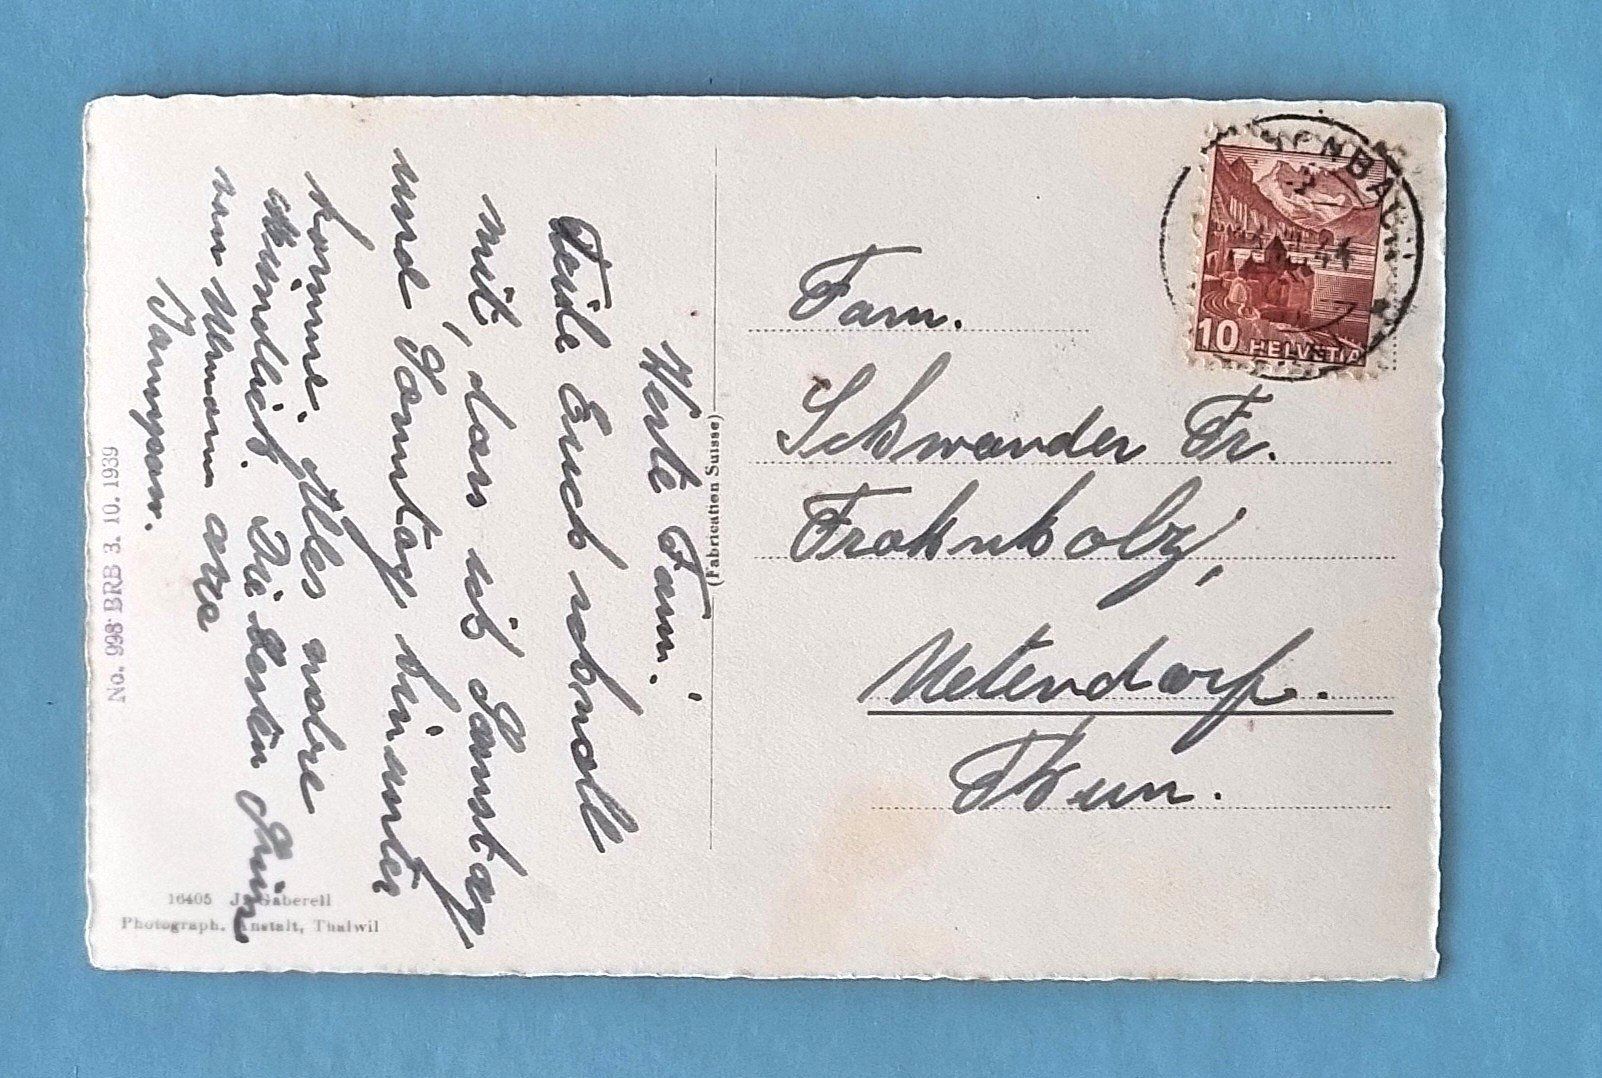 Werte Fam.
Teile Euch schnell
mit, dass ich Samstag
und Sonntag hinunter
komme. Alles nähere
mündlich. Die besten Grüsse
von
No. 998 BRB 3. 10. 1939
16405 J. Gaberell
Photograph. Anstalt, Thalwil
(Fabrication Suisse)
10 HELVETIA
Fam.
Schwander Fr.
Frohnholz,
Uetendorf.
Thun.